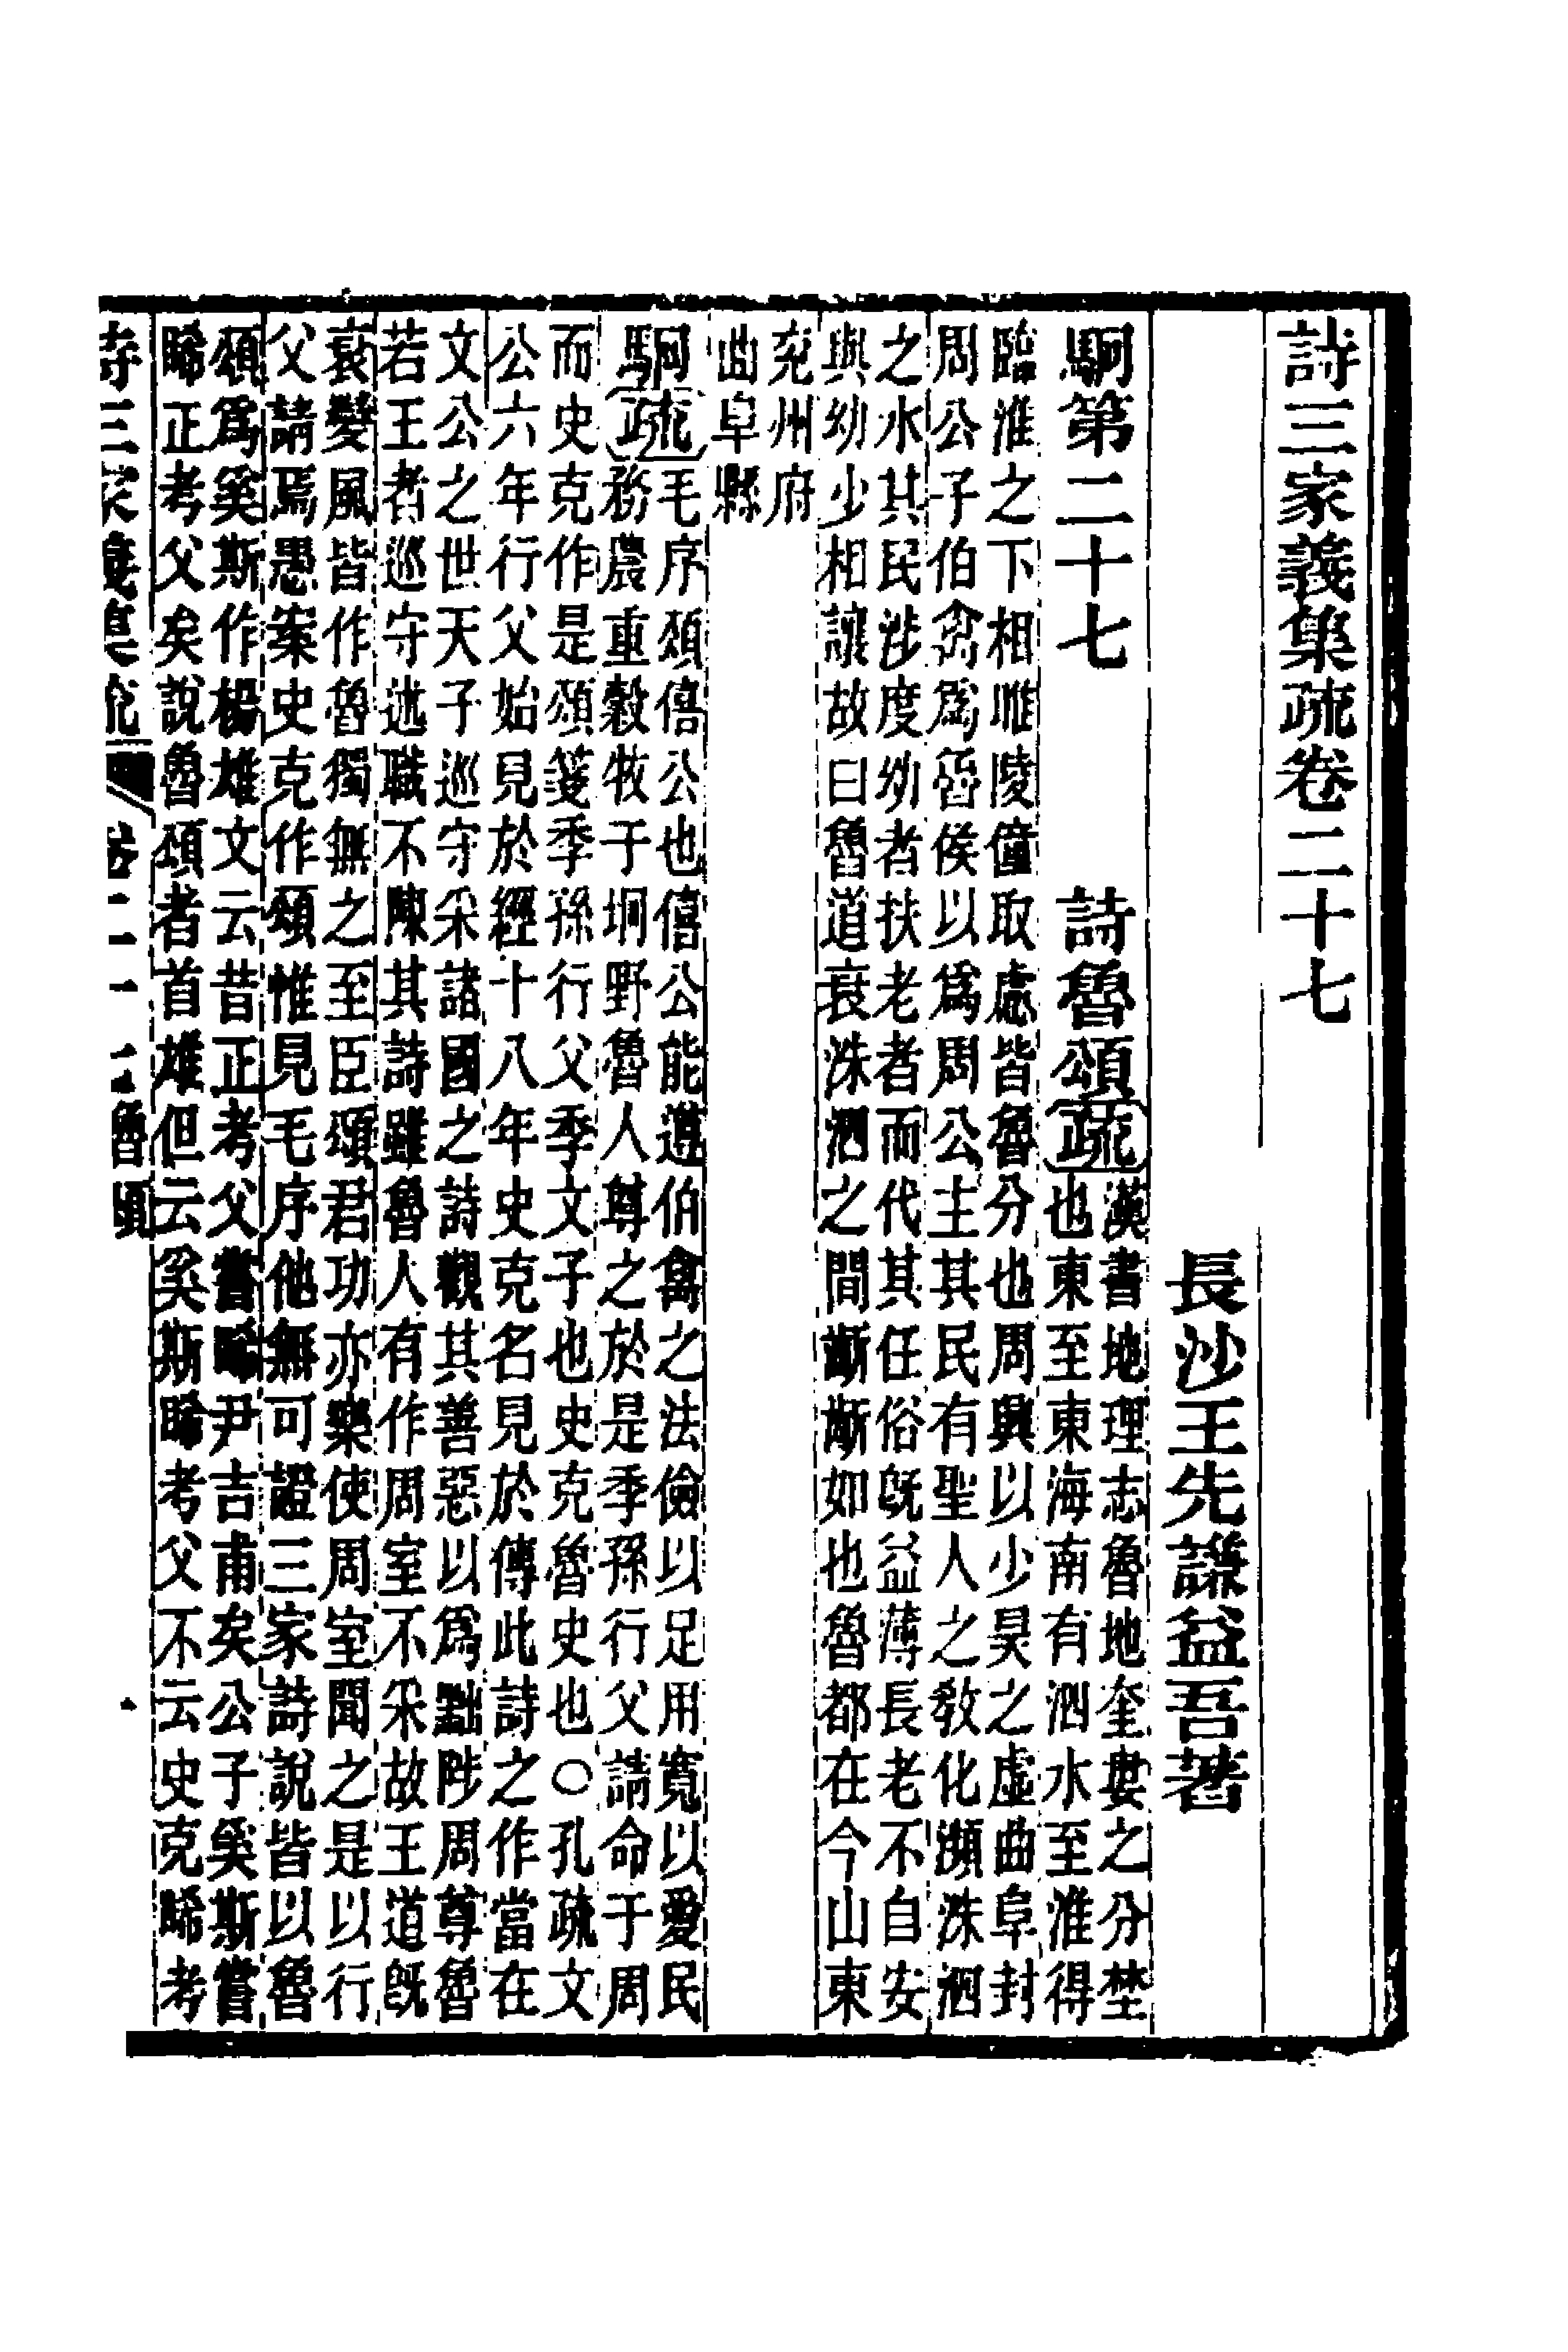 詩三家義集疏卷二十七
長沙王先謙益吾著
駉第二十七　詩魯頌疏
漢書地理志魯地奎婁之分埜
也東至東海南有泗水至淮得
臨淮之下相睢陵僮取慮皆魯分也周興以少昊之虛曲阜封
周公子伯禽爲魯侯以爲周公主其民有聖人之敎化瀕洙泗
之水其民涉度幼者扶老者而代其任俗旣益薄長老不自安
與幼少相讓故曰魯道衰洙泗之間齗齗如也魯都在今山東
兖州府
曲阜縣
駉疏
毛序頌僖公也僖公能遵伯禽之法儉以足用寬以愛民
務農重穀牧于坰野魯人尊之於是季孫行父請命于周
而史克作是頌箋季孫行父季文子也史克魯史也○孔疏文
公六年行父始見於經十八年史克名見於傳此詩之作當在
文公之世天子巡守采諸國之詩觀其善惡以爲黜陟周尊魯
若王者巡守述職不陳其詩雖魯人有作周室不采故王道旣
衰變風皆作魯獨無之至臣頌君功亦樂使周室聞之是以行
父請焉愚案史克作頌惟見毛序他無可證三家詩說皆以魯
頌爲奚斯作楊雄文云昔正考父嘗睎尹吉甫矣公子奚斯嘗
睎正考父矣說魯頌者首雄但云奚斯睎考父不云史克睎考
詩三家義集疏　卷二十七魯頌